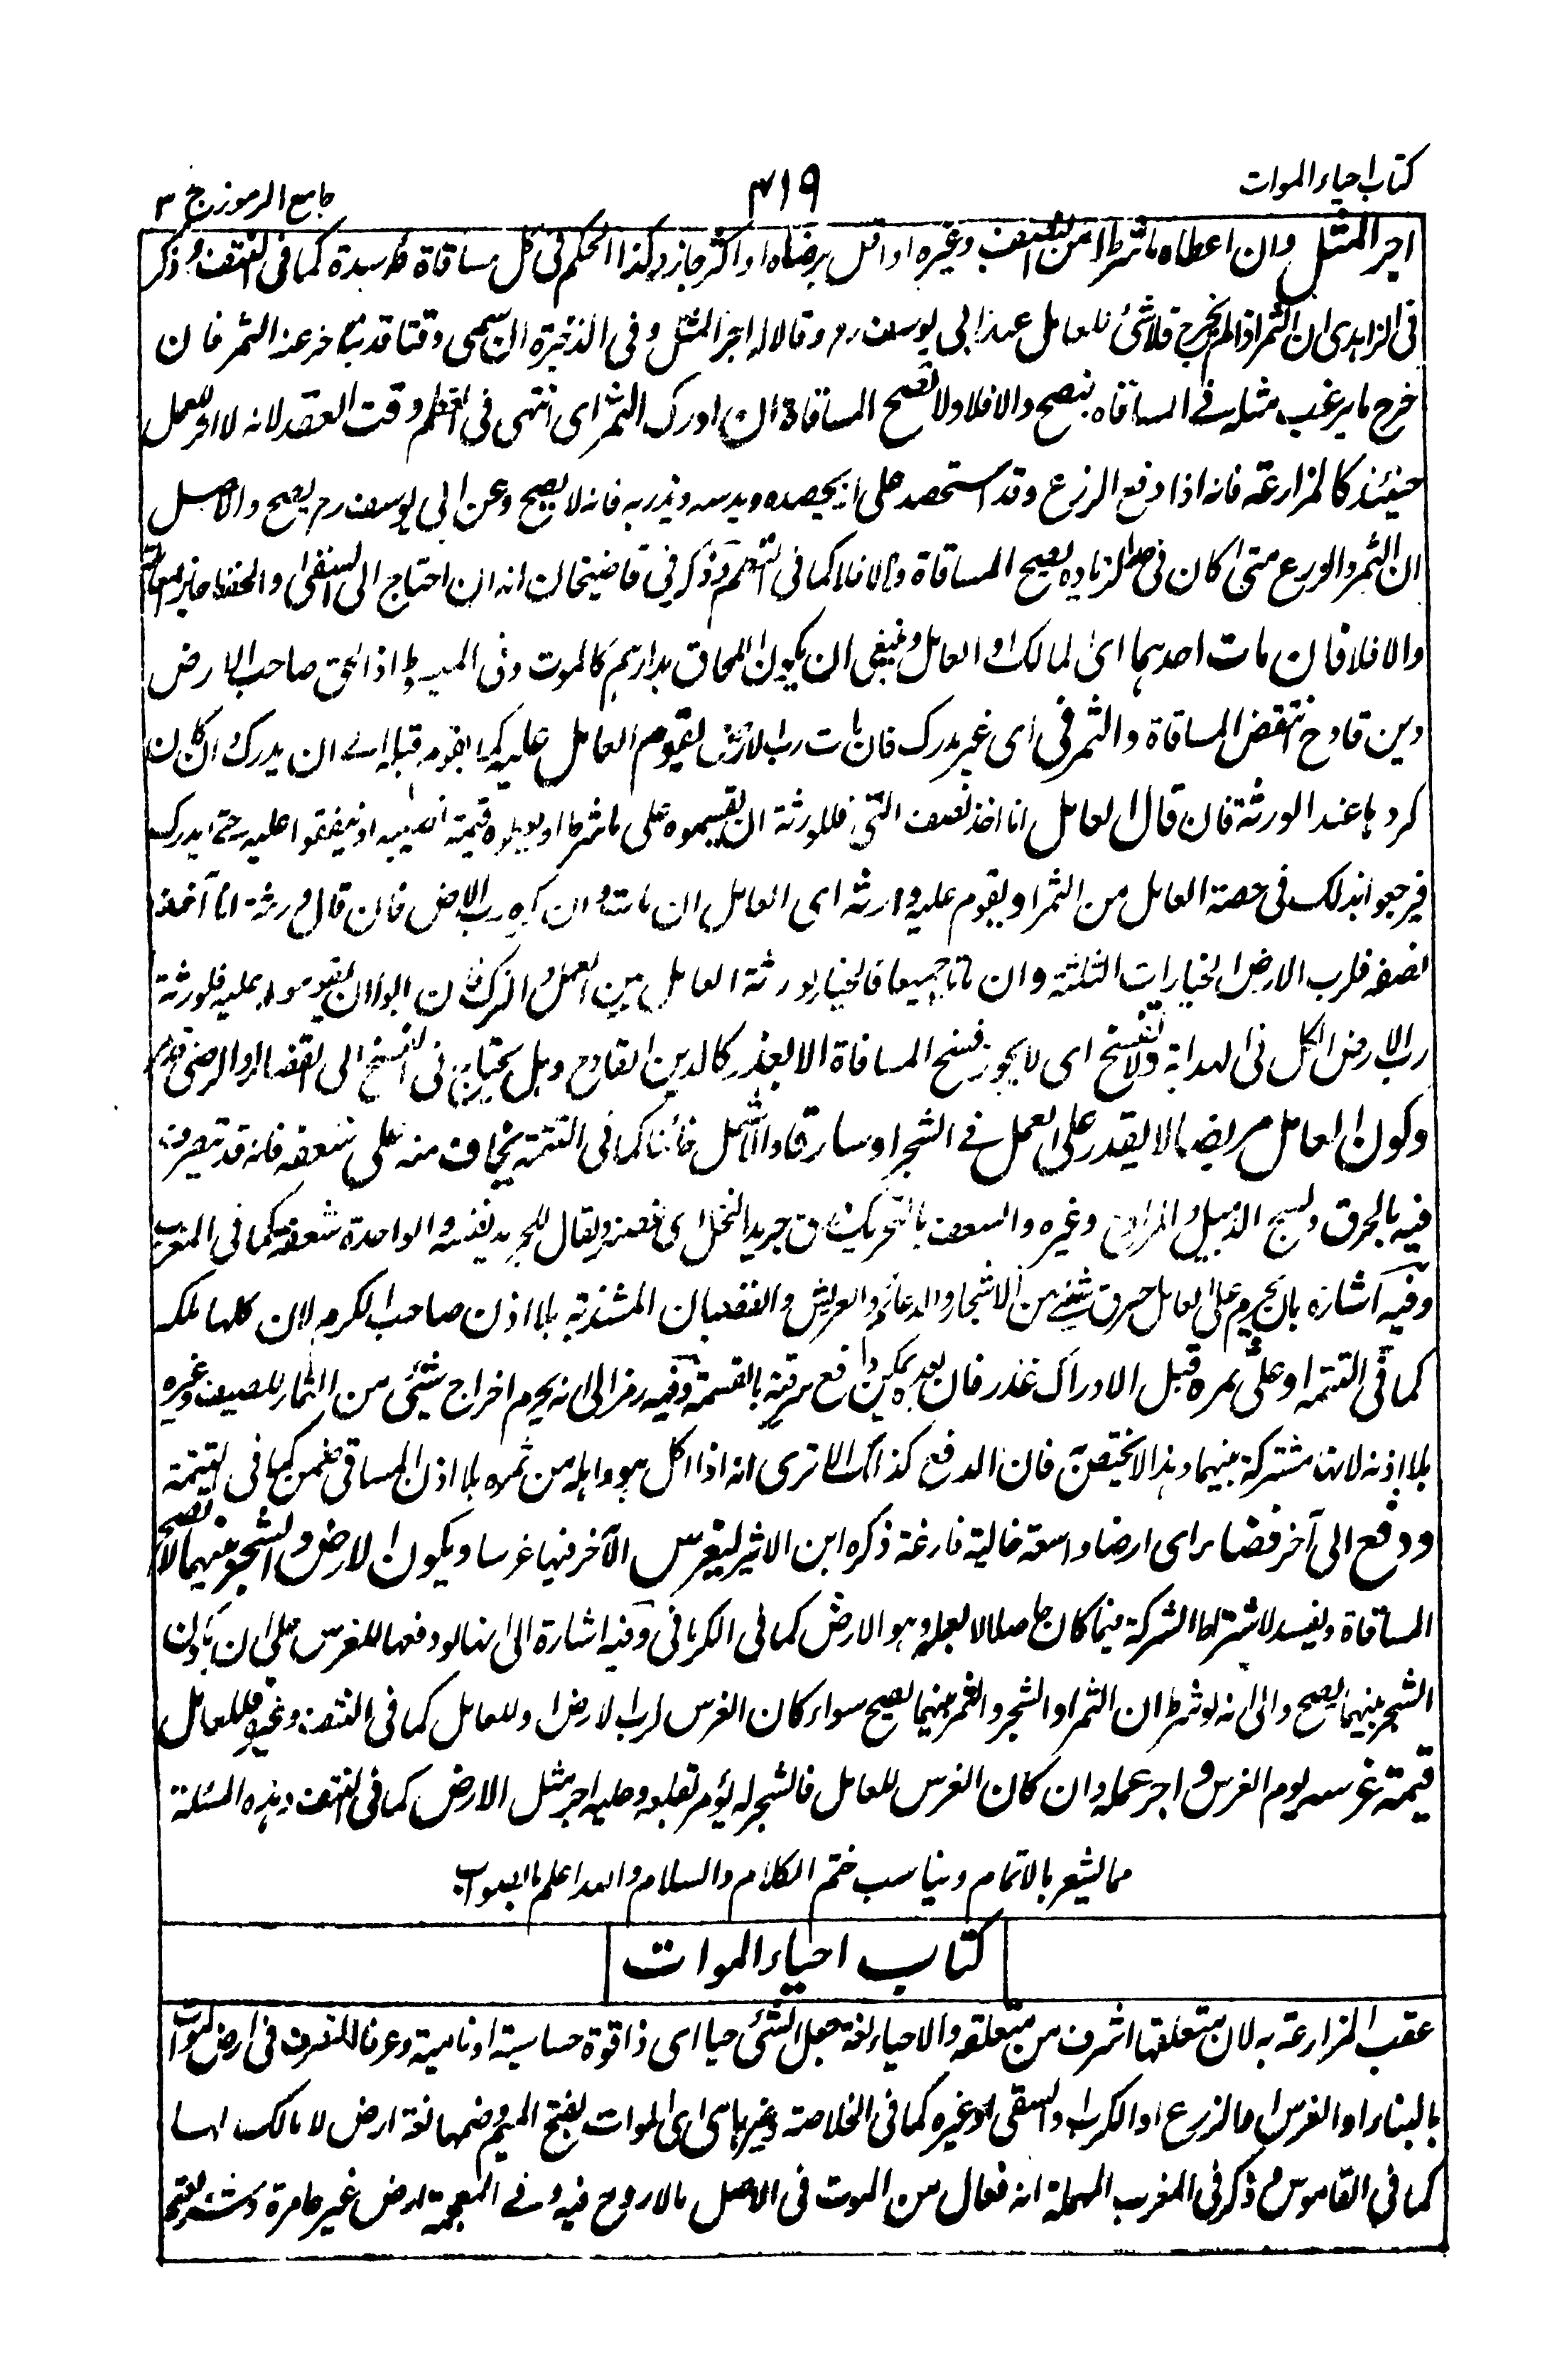 كتاب احياء الموات
٤١٩
جامع الرموز ج ٣
اجر المثل وان اعطاه ما شرط من النصف وغيره او اقل برضاه او اكثر جاز وكذا الحكم في كل مساقاة فاسدة كما في النتف وذكر
في الزاهدى ان الثمر اذا لم يخرج فلا شئ للعامل عند ابي يوسف رم وقالا له اجر المثل وفى الذخيرة ان سمى وقتا قد يتاخر عنه الثمر فان
خرج ما يرغب مثله في المساقاه يصح والا فلا ولا تصح المساقاة ان ادرك الثمر اى انتهى فى العظم وقت العقد لانه لا اثر للعمل
حينئذ كالمزارعة فانه اذا دفع الزرع وقد استحصد على ان يحصده ويدسه ويذريه فانه لا يصح وعن ابي يوسف رم يصح والاصل
ان الثمر والزرع متى كان فى حد الزياده يصح المساقاة والا فلا كما فى وذكر في قاضيخان انه ان احتاج الى السقى او الحفظ جاز
والا فلا فان مات احدهما اى المالك او العامل وينبغى ان يكون اللحاق بدارهم كالموت وفى المبسوط اذا لحق صاحب الارض
دين فادح تنتقض المساقاة والثمر نى اى غير مدرك فان مات رب الارض يقوم العامل عليه كما يقوم قبله الے ان يدرك وان كان
كرها عند الورثة فان قال العامل انا اخذ نصف النى فللورثة ان يقسموه على ما شرط او يعطوه قيمة نصيبه او ينفقوا عليه حتى يدرك
فيرجعوا بذلك فى حصة العامل من الثمر او يقوم عليه وارثه اى العامل ان مات وان كره رب الارض فان قال ورثة انا آخذ
نصفه فلرب الارض الخيارات الثلثة وان ماتا جميعا فالخيار لورثة العامل بين العمل والترك فان ابوا ان يقوموا عليه فلورثة
رب الارض الكل فى الهداية ولا تفسخ اى لا يجوز فسخ المساقاة الا لعذر كالدين الفادح وهل يحتاج فى الفسخ الى القضاء او الرضى
وكون العامل مريضا لا يقدر على العمل في الشجر او سارقا خائنا كما فى التتمة يخاف منه على سعفه فانه قد يتصرف
فيه بالحرق ونسج الزنبيل والمراوح وغيره والسعف بالتحريك ورق جريد النخل اى غصنه ويقال للجريد نفسه والواحدة سعفة كما فى المغرب
وفيه اشارة بان يحرم على العامل حرق شئ من الاشجار والدعائم والعريش والقضبان المشذبة بلا اذن صاحب الكرم لان كلها ملكه
كما فى التتمه او على ثمره قبل الادراك عذر فان بعده يمكن دفع سرقته بالقسمة وفيه رمز الى انه يحرم اخراج شئى من الثمار للضيف وغيره
بلا اذنه لانها مشتركة بينهما وهذا لا يختص فان الدفع كذلك الا ترى انه اذا اكل هو واهله من ثمره بلا اذن المساقى ضمن كما فى التتمة
ودفع الى آخر فضاء اى ارضا واسعة خالية فارغة ذكره ابن الاثير ليغرس الآخر فيها غرسا ويكون الارض والشجر بينهما لا تصح
المساقاة ويفسد لاشتراط الشركة فيما كان حاصلا لا بعمله وهو الارض كما فى الكرمانى وفيه اشارة الى انها لو دفعها للغرس على ان يكون
الشجر بينهما يصح والى انه لو شرط ان الثمر او الشجر والثمر بينهما يصح سواء كان الغرس لرب الارض او للعامل كما فى النتف وغيره فللعامل
قيمة غرسه يوم الغرس واجر عمله وان كان الغرس للعامل فالشجر له يؤمر بقلعه وعليه اجر مثل الارض كما فى النتف وهذه المسئلة
مما يشعر بالاتمام ويناسب ختم الكلام والسلام والله اعلم بالصواب
كتاب احياء الموات
عقب المزارعة به لان متعلقها اشرف من متعلقه والاحياء لغة جعل الشئى حيا اى ذا قوة حساسية او نامية وعرفا للتصرف فى ارض الموات
بالبناء او الغرس او الزرع او الكراب والسقى او غيره كما فى الخلاصة وغيرها اى الموات بفتح الميم وضمها لغة ارض لا مالك لها
كما فى القاموس وذكر فى المغرب المهملة انه فعال من الموت فى الاصل مالا روح فيه وفے المعجمة ارض غير عامرة